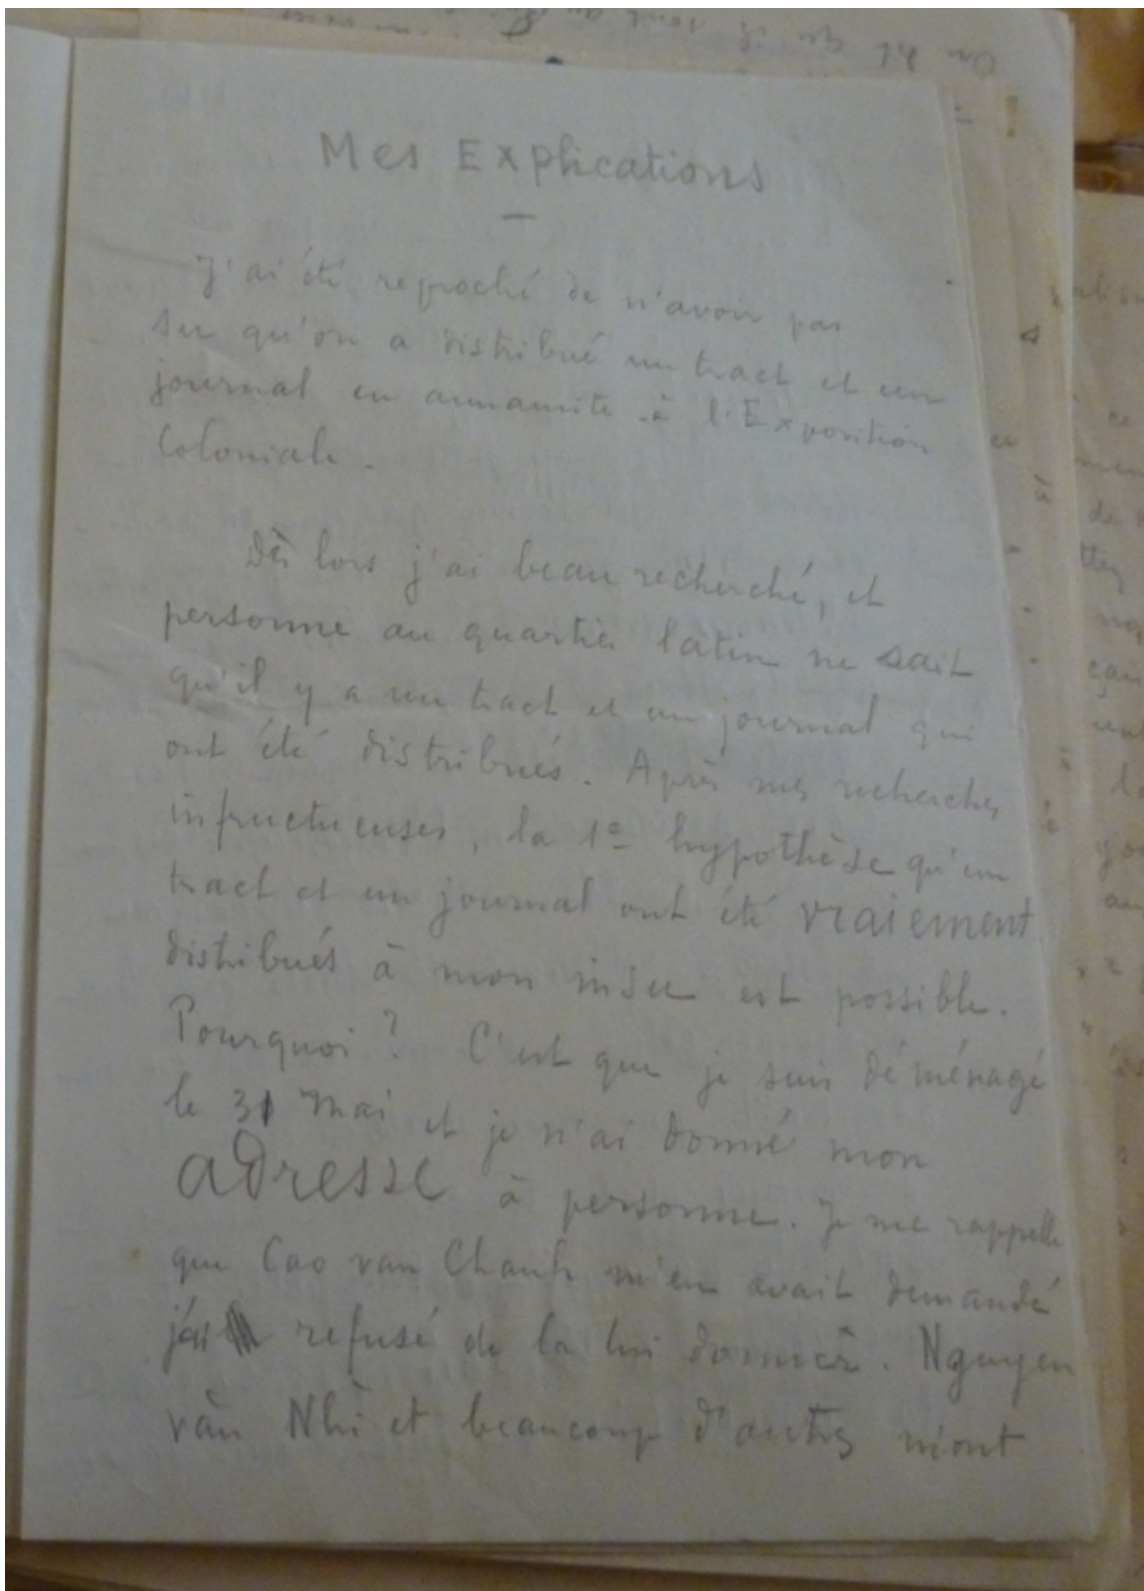 Mes Explications
J'ai été reproché de n'avoir pas
su qu'on a distribué un tract et un
journal en annamite à l'Exposition
Coloniale.
Dès lors j'ai beau recherché, et
personne au quartier latin ne sait
qu'il y a un tract et un journal qui
ont été distribués. Après mes recherches
infructueuses, la 1e hypothèse qu'un
tract et un journal ont été vraiement
distribués à mon insu est possible.
Pourquoi ? C'est que je suis déménagé
le 31 mai et je n'ai donné mon
adresse à personne. Je me rappelle
que Cao van Chanh m'en avait demandé
j'ai refusé de la lui donner. Nguyen
văn Nhi et beaucoup d'autres m'ont